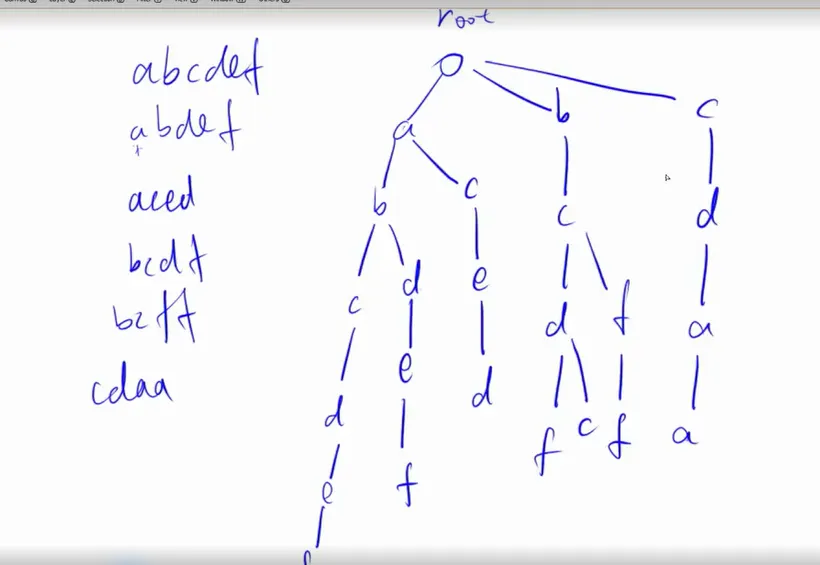 root
abcdef
abdef
aced
bcdf
bcff
cdaa
a b c
b c c d
c d e d f a
d e d f c f a
e f